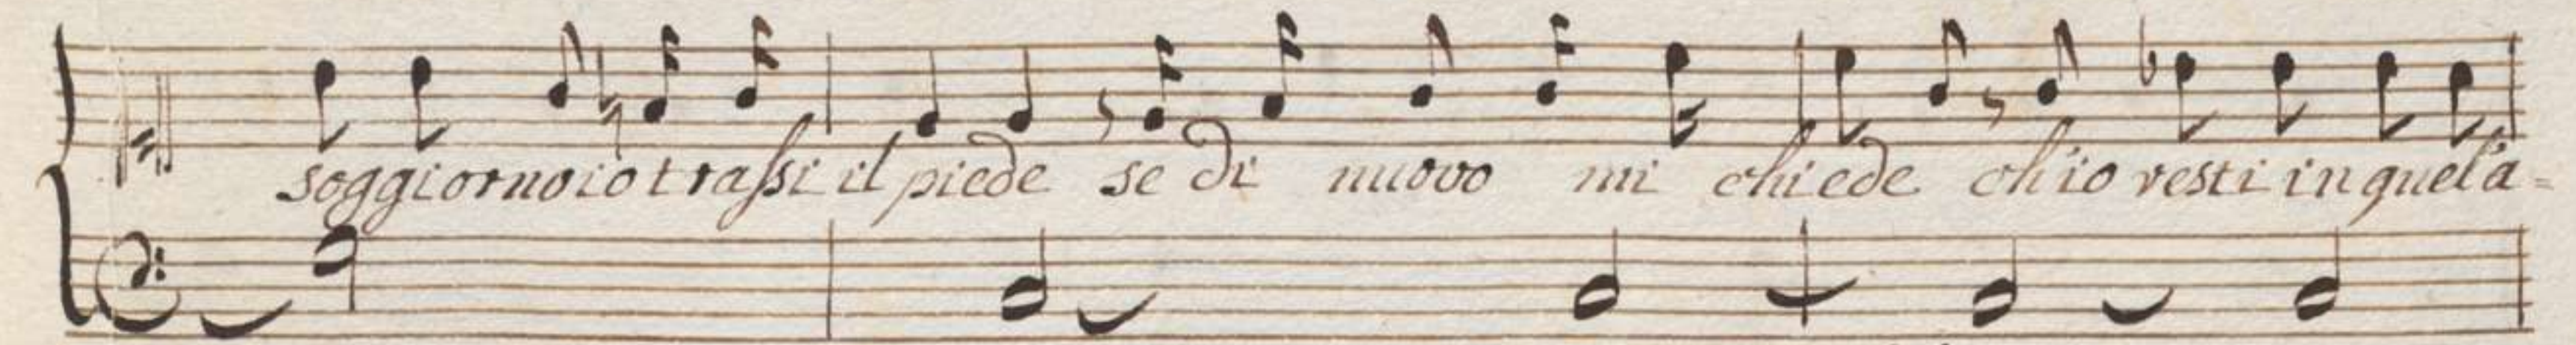 soggiorno io trassi il piede se di nuovo mi chiede ch'io resti in quel'a=